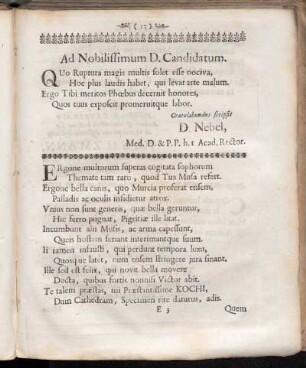 ( 37 )
Ad Nobilissimum D. Candidatum.
QUo Ruptura magis multis solet esse nociva,
Hoc plus laudis habet, qui levat arte malum.
Ergo Tibi meritos Phœbus decernit honores,
Quos tuus exposcit promeruitque labor.
Gratulabundus scripsit
D. Nebel,
Med. D. & P. P. h. t Acad. Rector.
ERgone multorum superas cogitata sophorum
Themate tam raro, quod Tus Musa refert.
Ergone bella canis, quo Murcia proferat ensem,
Palladis ac oculis insidietur atrox.
Vnius non sunt generis, quæ bella geruntur,
Hæc ferro pugnat, Pigritiæ ille litat.
Incumbunt alii Musis, ac arma capessunt,
Queis hostem feriant interimantque suum.
Ii tamen infausti, qui perdunt tempora luxu,
Quosque latet, cum ensem stringere jura sinant.
Ille sed est felix, qui novit bella movere
Docta, quibus fortis nomine Victor abit.
Te talem præstas, mi Præstantissime KOCHI,
Dum Cathedram, Specimen rite daturus, adis.
E 3 Quem